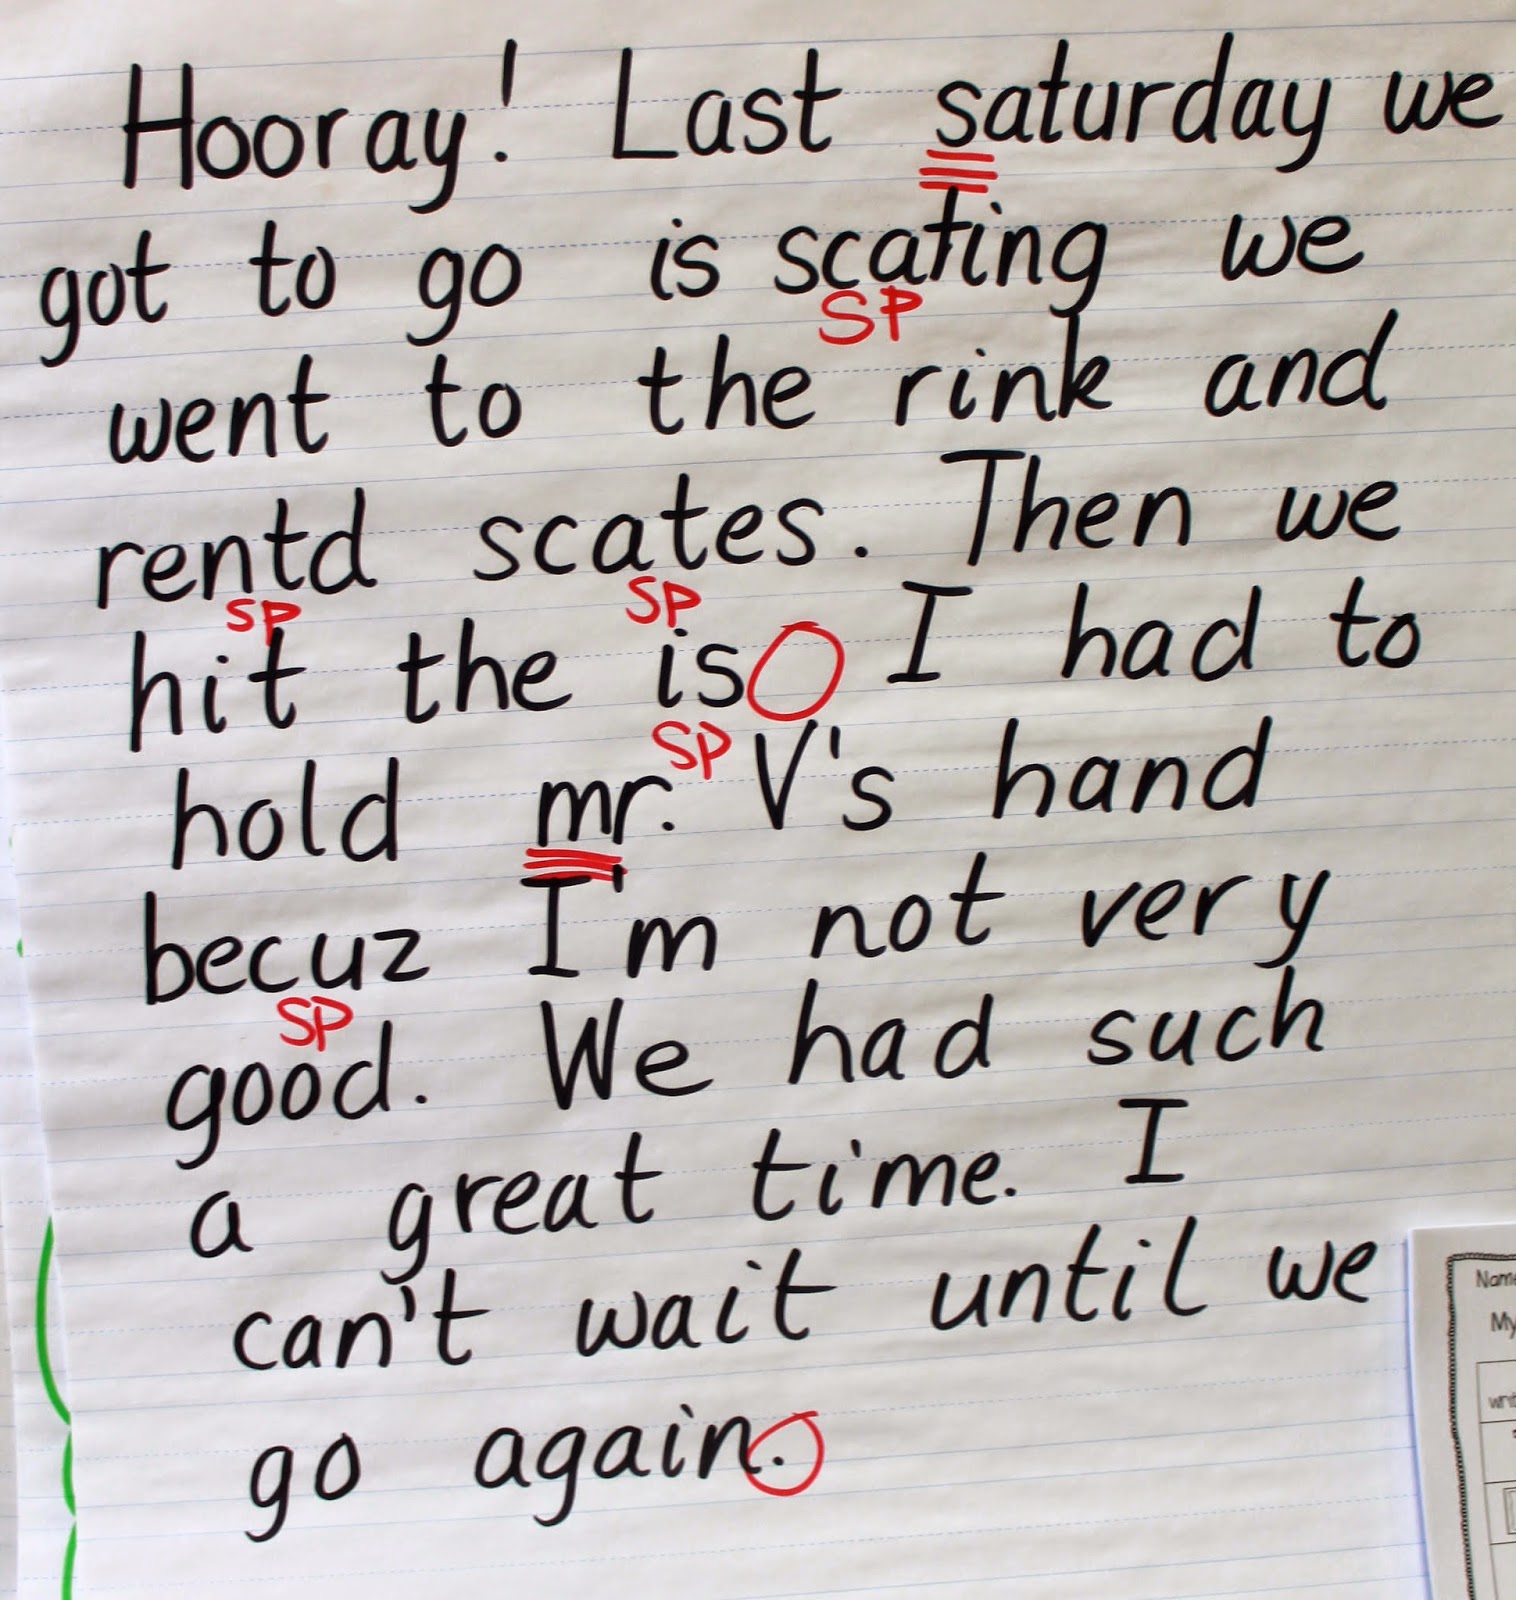 Hooray! Last saturday we
got to go is scating we
SP
went to the rink and
rentd scates. Then we
SP SP
hit the is I had to
SP
hold mr. V's hand
becuz I'm not very
SP
good. We had such
a great time. I
can't wait until we
go again.
Name
My